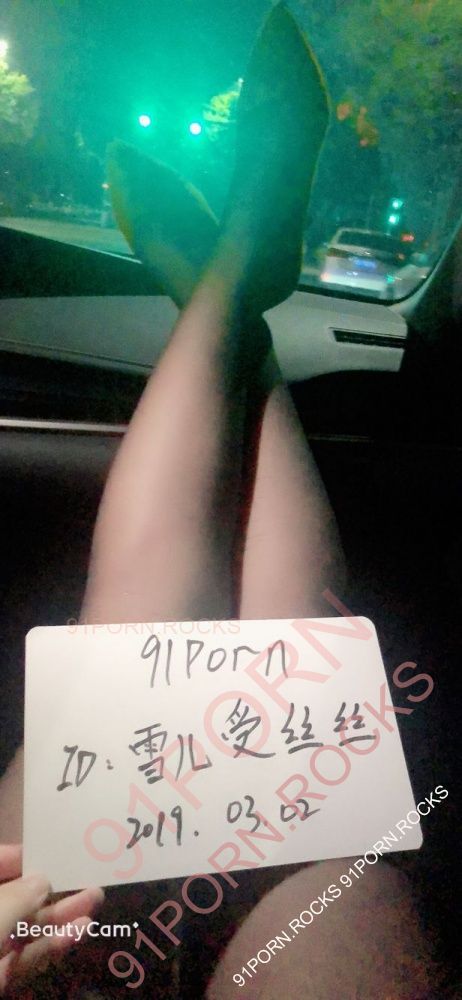 91PORN.ROCKS
91Porn
ID: 雪儿受丝丝
2019. 03. 02
91PORN
91PORN.ROCKS
91PORN.ROCKS 91PORN.ROCKS
.BeautyCam.